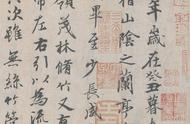 年歲在癸丑暮
稽山陰之蘭亭
畢至少長咸
領茂林脩竹又有
帶左右引以為流
次雖無絲竹